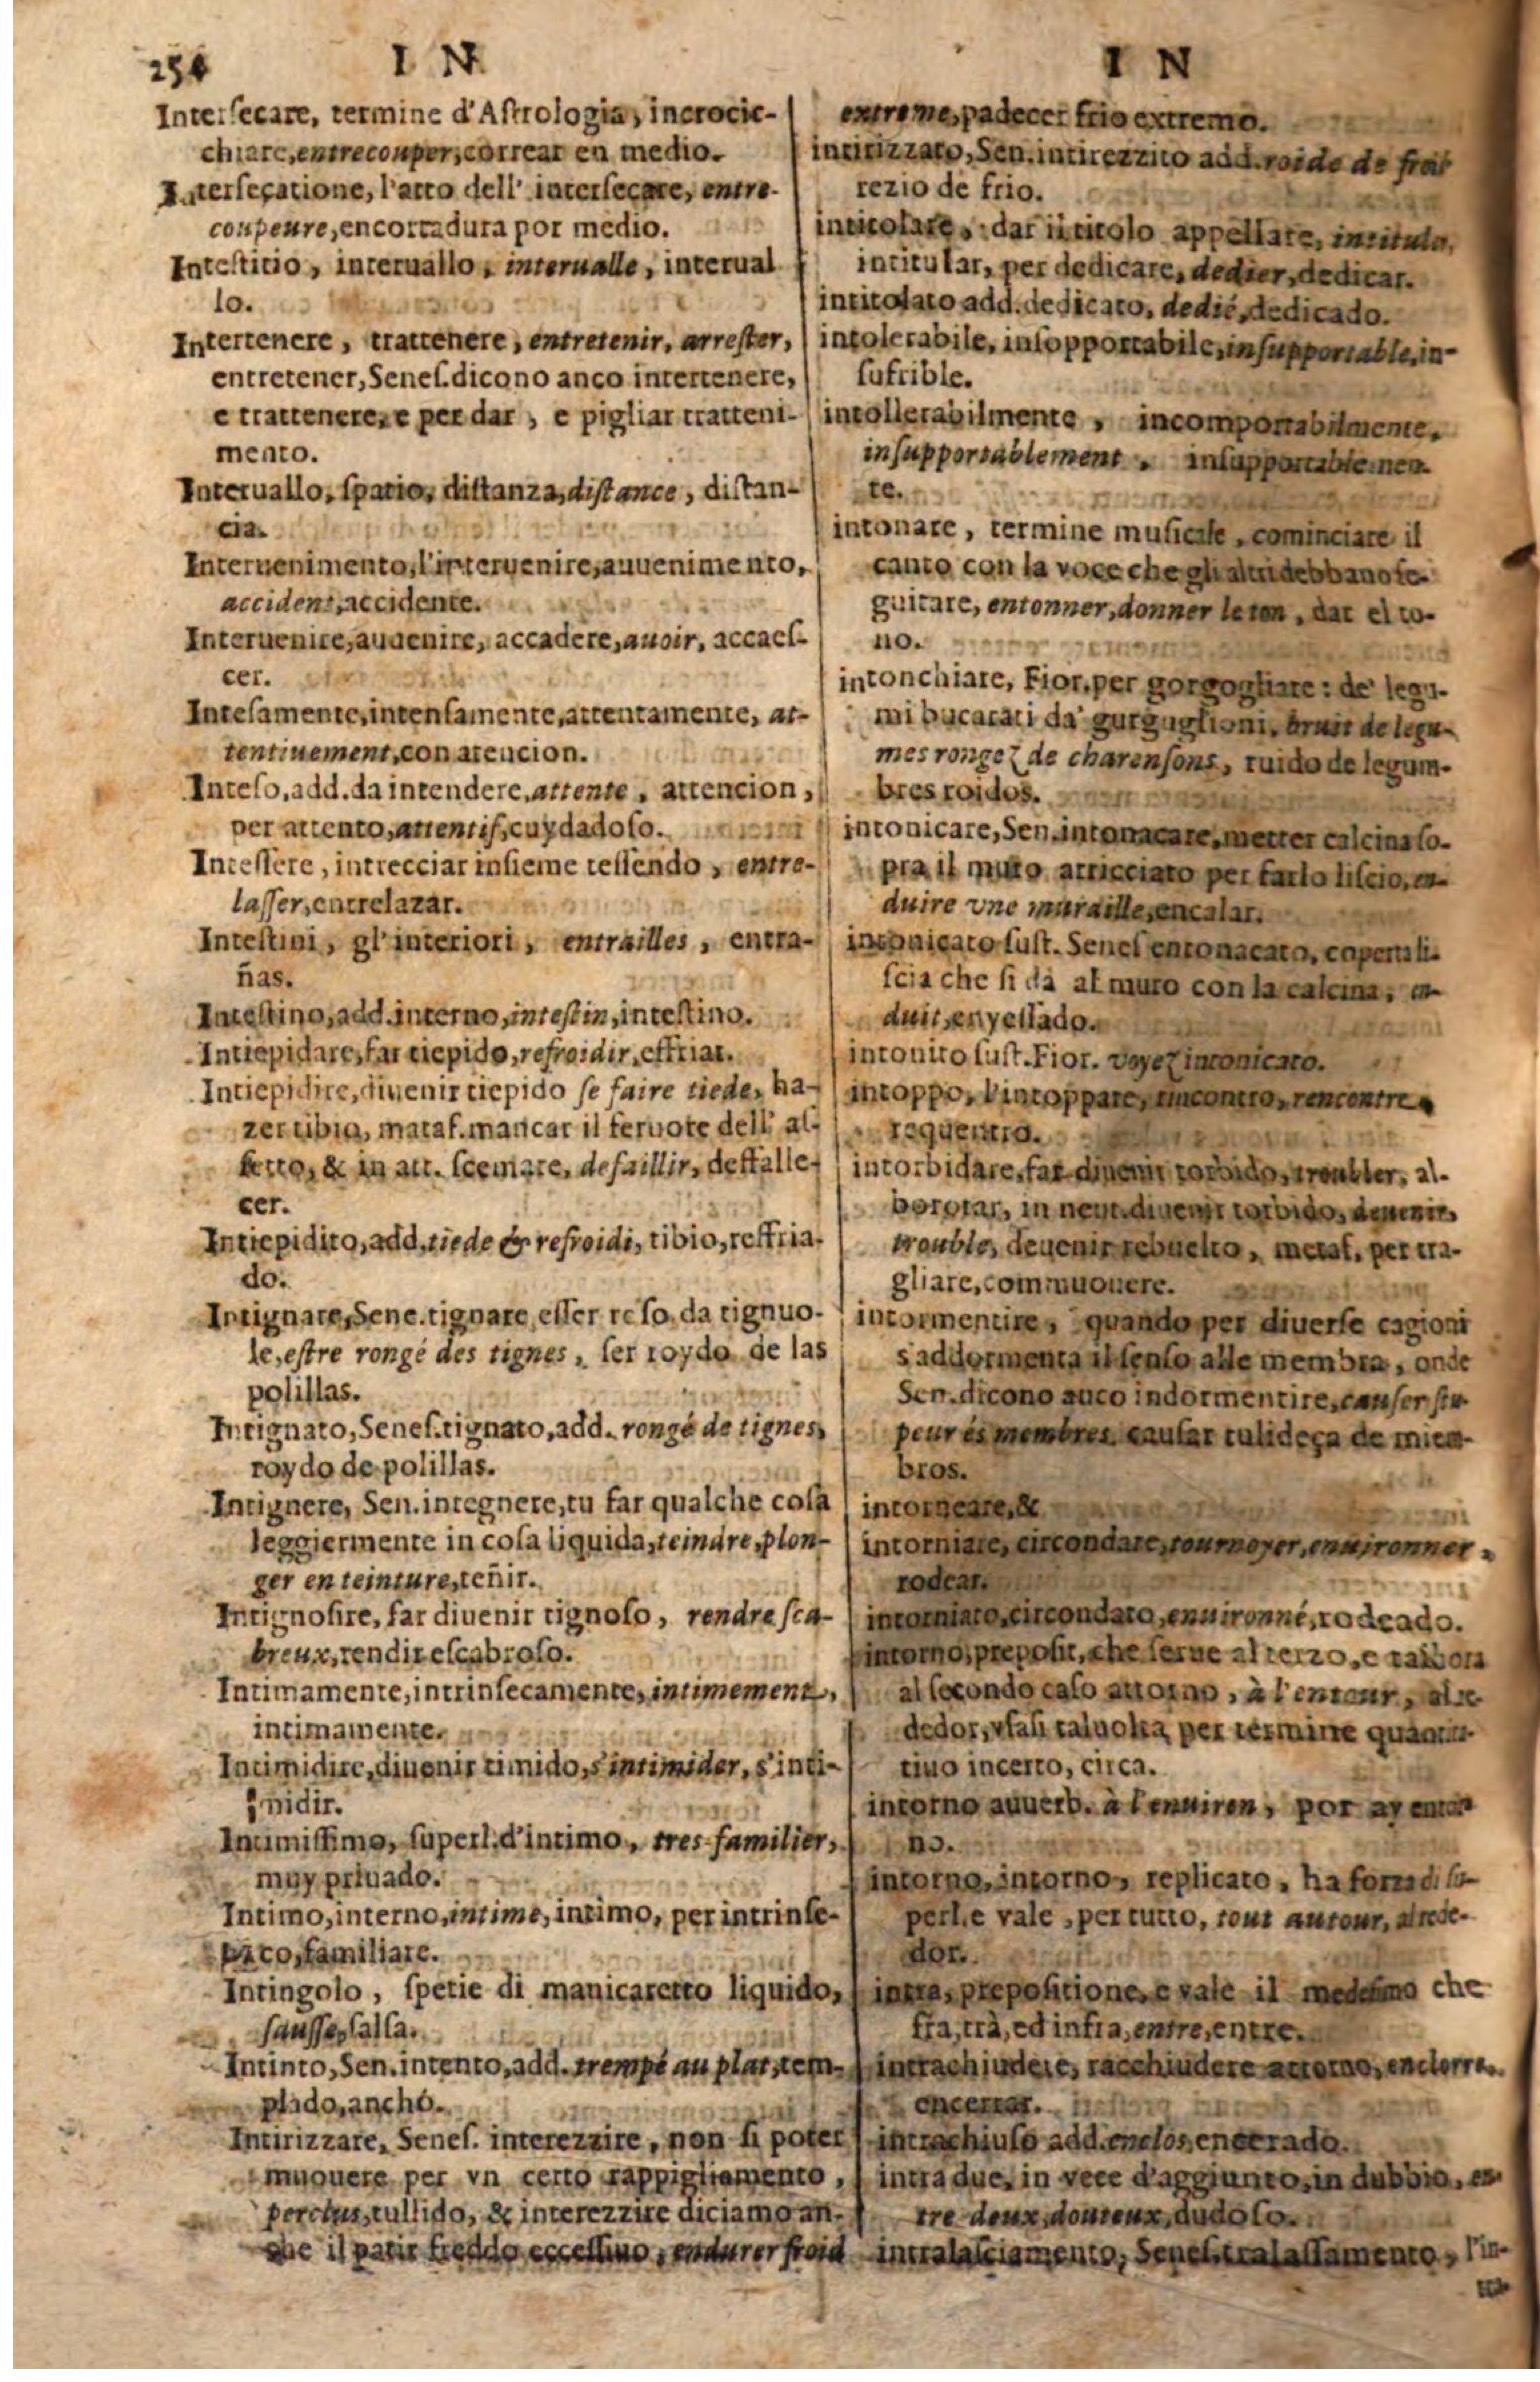 254 I N
I N
Interſecare, termine d'Aſtrologia, incrocic-
chiare, entrecouper, correar en medio.
Interſecatione, l'atto dell' interſecare, entre-
coupeure, encortadura por medio.
Inteſtitio, interuallo, interualle, interual
lo.
Intertenere, trattenere, entretenir, arreſter,
entretener, Seneſ. dicono anco intertenere,
e trattenere, e per dar, e pigliar tratteni-
mento.
Interuallo, ſpatio, diſtanza, diſtance, diſtan-
cia.
Interuenimento, l'interuenire, auuenimento,
accident, accidente.
Interuenire, auuenire, accadere, auoir, accaeſ-
cer.
Inteſamente, intenſamente, attentamente, at-
tentiuement, con atencion.
Inteſo, add. da intendere, attente, attencion,
per attento, attentif, cuydadoſo.
Inteſſere, intrecciar inſieme teſſendo, entre-
laſſer, entrelazar.
Inteſtini, gl'interiori, entrailles, entra-
ñas.
Inteſtino, add. interno, inteſtin, inteſtino.
Intiepidare, far tiepido, refroidir, effriar.
Intiepidire, diuenir tiepido ſe faire tiede, ha-
zer tibio, mataf. mancar il feruore dell' af-
fetto, & in att. ſcemare, defaillir, deſfalle-
cer.
Intiepidito, add. tiede & refroidi, tibio, reffria-
do.
Intignare, Sene. tignare, eſſer roſo da tignuo-
le, eſtre rongé des tignes, ſer roydo de las
polillas.
Intignato, Seneſ. tignato, add. rongé de tignes,
roydo de polillas.
Intignere, Sen. integnere, tu far qualche coſa
leggiermente in coſa liquida, teindre, plon-
ger en teinture, teñir.
Intignoſire, far diuenir tignoſo, rendre ſca-
breux, rendir eſcabroſo.
Intimamente, intrinſecamente, intimement,
intimamente.
Intimidire, diuenir timido, s'intimider, s'inti-
midir.
Intimiſſimo, ſuperl. d'intimo, tres familier,
muy priuado.
Intimo, interno, intime, intimo, per intrinſe-
co, familiare.
Intingolo, ſpetie di manicaretto liquido,
ſauſſe, ſalſa.
Intinto, Sen. intento, add. trempé au plat, tem-
plado, anchó.
Intirizzare, Seneſ. interezzire, non ſi poter
muouere per vn certo rappigliamento,
perclus, tullido, & interezzire diciamo an-
che il patir freddo ecceſſiuo, endurer froid
extreme, padecer frio extremo.
intirizzato, Sen. intirezzito add. roide de froit
rezio de frio.
intitolare, dar il titolo appellare, intitula,
intitular, per dedicare, dedier, dedicar.
intitolato add. dedicato, dedié, dedicado.
intolerabile, inſopportabile, inſupportable, in-
ſufrible.
intollerabilmente, incomportabilmente,
inſupportablement, inſupportablemen
te.
intonare, termine muſicale, cominciare il
canto con la voce che gli altri debbano ſe-
guitare, entonner, donner le ton, dar el to-
no.
intonchiare, Fior. per gorgogliare: de' legu-
mi bucarati da' gurguglioni, bruit de legu-
mes rongez de charenſons, ruido de legum-
bres roidos.
intonicare, Sen. intonacare, metter calcina ſo-
pra il muro arricciato per farlo liſcio, en-
duire vne muraille, encalar.
intonicato ſuſt. Seneſ entonacato, coperta li-
ſcia che ſi dà al muro con la calcina, en-
duit, enyeſſado.
intonito ſuſt. Fior. voyez intonicato.
intoppo, l'intoppare, rincontro, rencontre,
requentro.
intorbidare, far diuenir torbido, troubler, al-
borotar, in neut. diuenir torbido, deuenir
trouble, deuenir rebuelto, metaf. per tra-
gliare, commuouere.
intormentire, quando per diuerſe cagioni
s'addormenta il ſenſo alle membra, onde
Sen. dicono anco indormentire, cauſer ſtu-
peur és membres, cauſar tulideça de miem-
bros.
intorneare, &
intorniare, circondare, tournoyer, enuironner,
rodear.
intorniato, circondato, enuironné, rodeado.
intorno, prepoſit, che ſerue al terzo, e tallora
al ſecondo caſo attorno, à l'entour, alre-
dedor, vſaſi taluolta per termine quanti-
tiuo incerto, circa.
intorno auuerb. à l'enuiron, por ay entor
no.
intorno, intorno, replicato, ha forza di ſu-
perl. e vale, per tutto, tout autour, alrede-
dor.
intra, prepoſitione, e vale il medeſimo che
fra, trà, ed infra, entre, entre.
intrachiudere, racchiudere attorno, enclorre,
encerrar.
intrachiuſo add. enclos, encerado.
intra due, in vece d'aggiunto, in dubbio, en-
tre deux, douteux, dudoſo.
intralaſciamento, Seneſ. tralaſſamento, l'in-